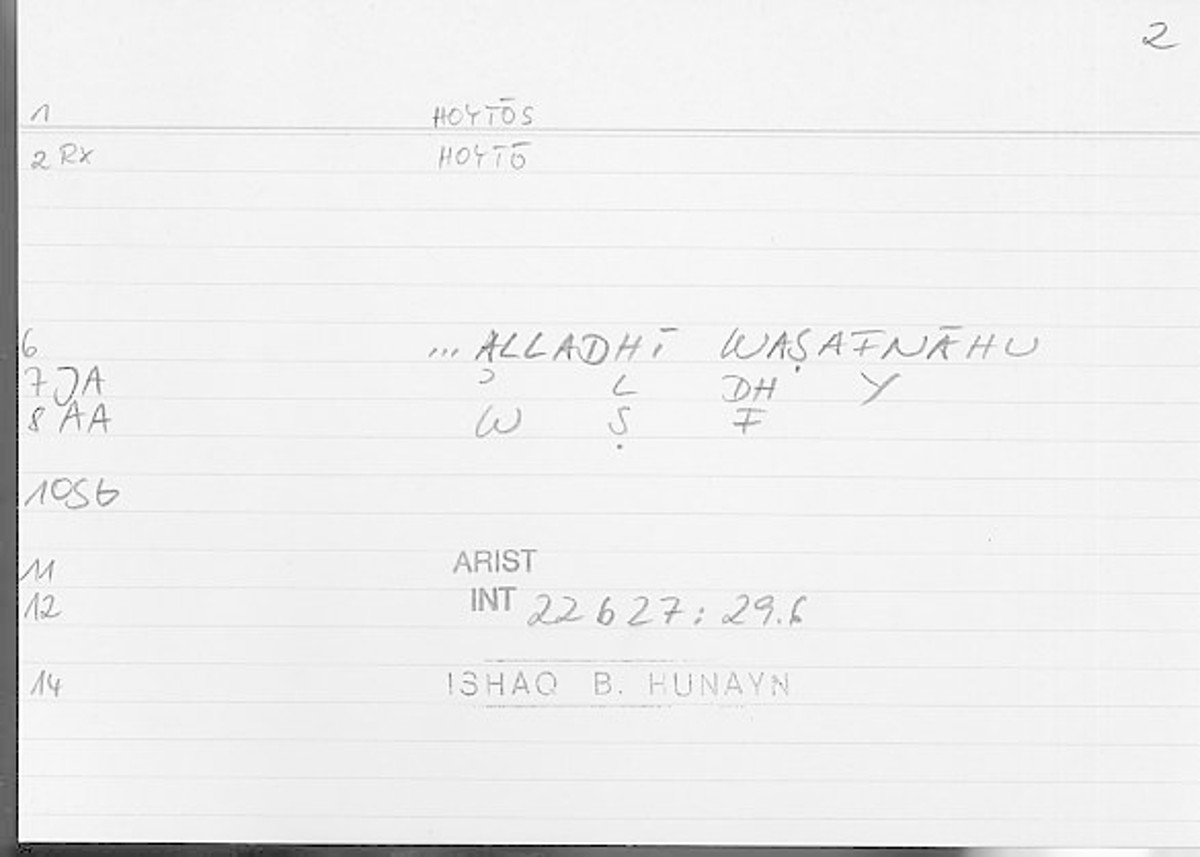 2
1 HOYTŌS
2 RX HOYTŌ
6 ... ALLADHĪ WAṢAFNĀHU
7 JA ʾ L DH Y
8 AA W Ṣ F
10 Sb
11 ARIST
12 INT 22 b 27 : 29.6
14 ISHAQ B. HUNAYN